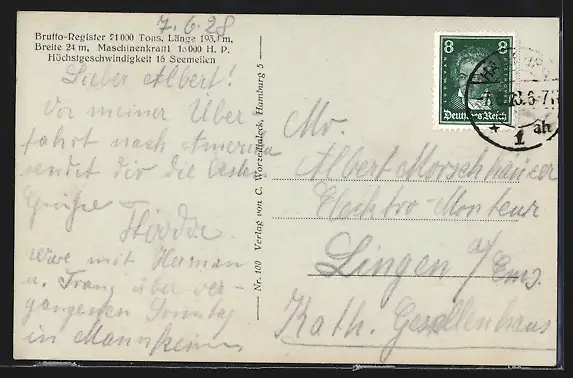 7.6.28
Brutto-Register 21000 Tons, Länge 193,1 m,
Breite 24 m, Maschinenkraft 13000 H. P.
Höchstgeschwindigkeit 16 Seemeilen
Lieber Albert!
Vor meiner Über
fahrt nach Amerika
sendet dir die besten
Grüße
Wäre mit Herman
u. Franz über ver-
gangenen Sonntag
in Mannheim
Nr. 100 Verlag von C. Worzedialeck, Hamburg 5
8 8
Deutsches Reich
1 ah
Mr.
Albert Morschhäuser
Elektro-Monteur
Lingen a/Ems.
Kath. Gesellenhaus